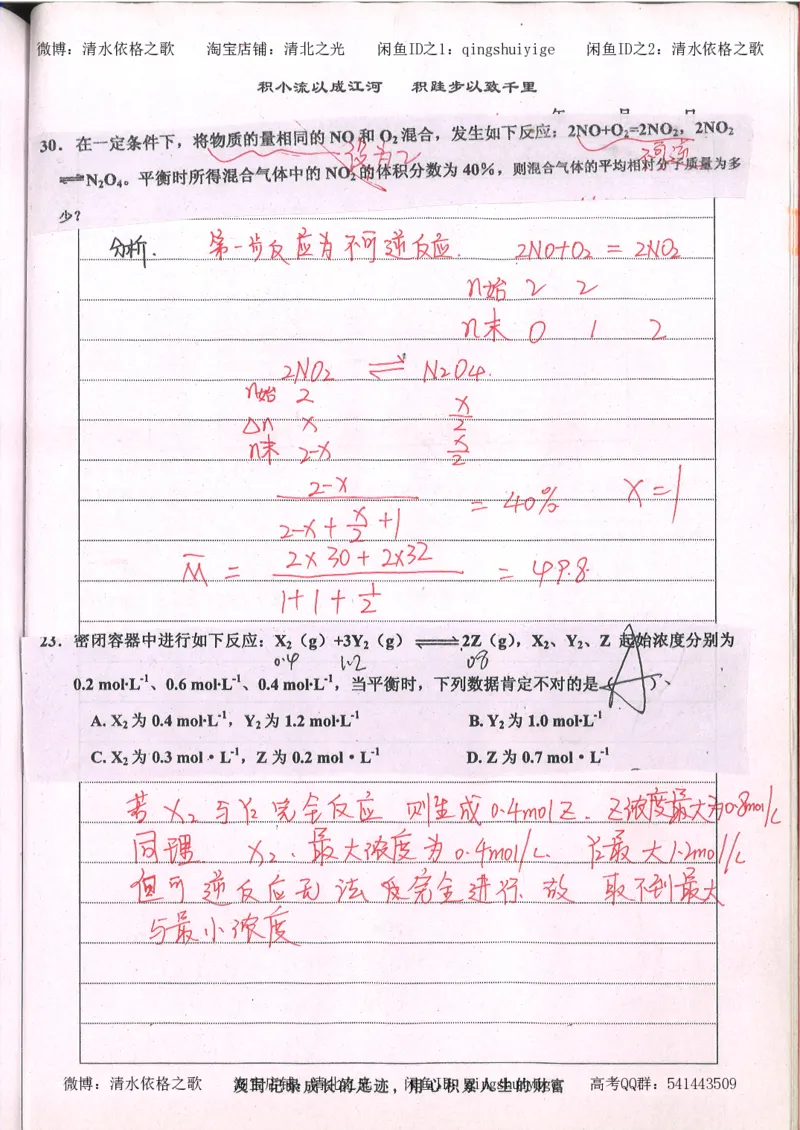 微博：清水依格之歌 淘宝店铺：清北之光 闲鱼ID之1：qingshuiyige 闲鱼ID之2：清水依格之歌
积小流以成江河 积跬步以致千里
30．在一定条件下，将物质的量相同的 NO 和 O₂ 混合，发生如下反应：2NO+O₂=2NO₂，2NO₂
设为2 不可逆
⇌N₂O₄。平衡时所得混合气体中的 NO₂ 的体积分数为 40%，则混合气体的平均相对分子质量为多
少？
分析. 第一步反应为不可逆反应. 2NO+O₂ = 2NO₂
n始 2 2
n末 0 1 2
2NO₂ ⇌ N₂O₄.
n始 2
Δn x x/2
n末 2-x x/2
(2-x)/(2-x+x/2+1) = 40% x=1
M̄ = (2×30+2×32)/(1+1+1/2) = 49.8.
23．密闭容器中进行如下反应：X₂（g）+3Y₂（g）⇌2Z（g），X₂、Y₂、Z 起始浓度分别为
0.4 1.2 0.8
0.2 mol·L⁻¹、0.6 mol·L⁻¹、0.4 mol·L⁻¹，当平衡时，下列数据肯定不对的是（A）、
A. X₂ 为 0.4 mol·L⁻¹，Y₂ 为 1.2 mol·L⁻¹ B. Y₂ 为 1.0 mol·L⁻¹
C. X₂ 为 0.3 mol·L⁻¹，Z 为 0.2 mol·L⁻¹ D. Z 为 0.7 mol·L⁻¹
若 X₂ 与 Y₂ 完全反应 则生成 0.4mol Z. Z浓度最大为0.8mol/L
同理 X₂. 最大浓度为 0.4mol/L. Y₂最大1.2mol/L
但可逆反应无法 完全进行 故 取不到最大
与最小浓度
微博：清水依格之歌 闲鱼ID：qingshuiyige 高考QQ群：541443509
及时记录成长的足迹，用心积累人生的财富